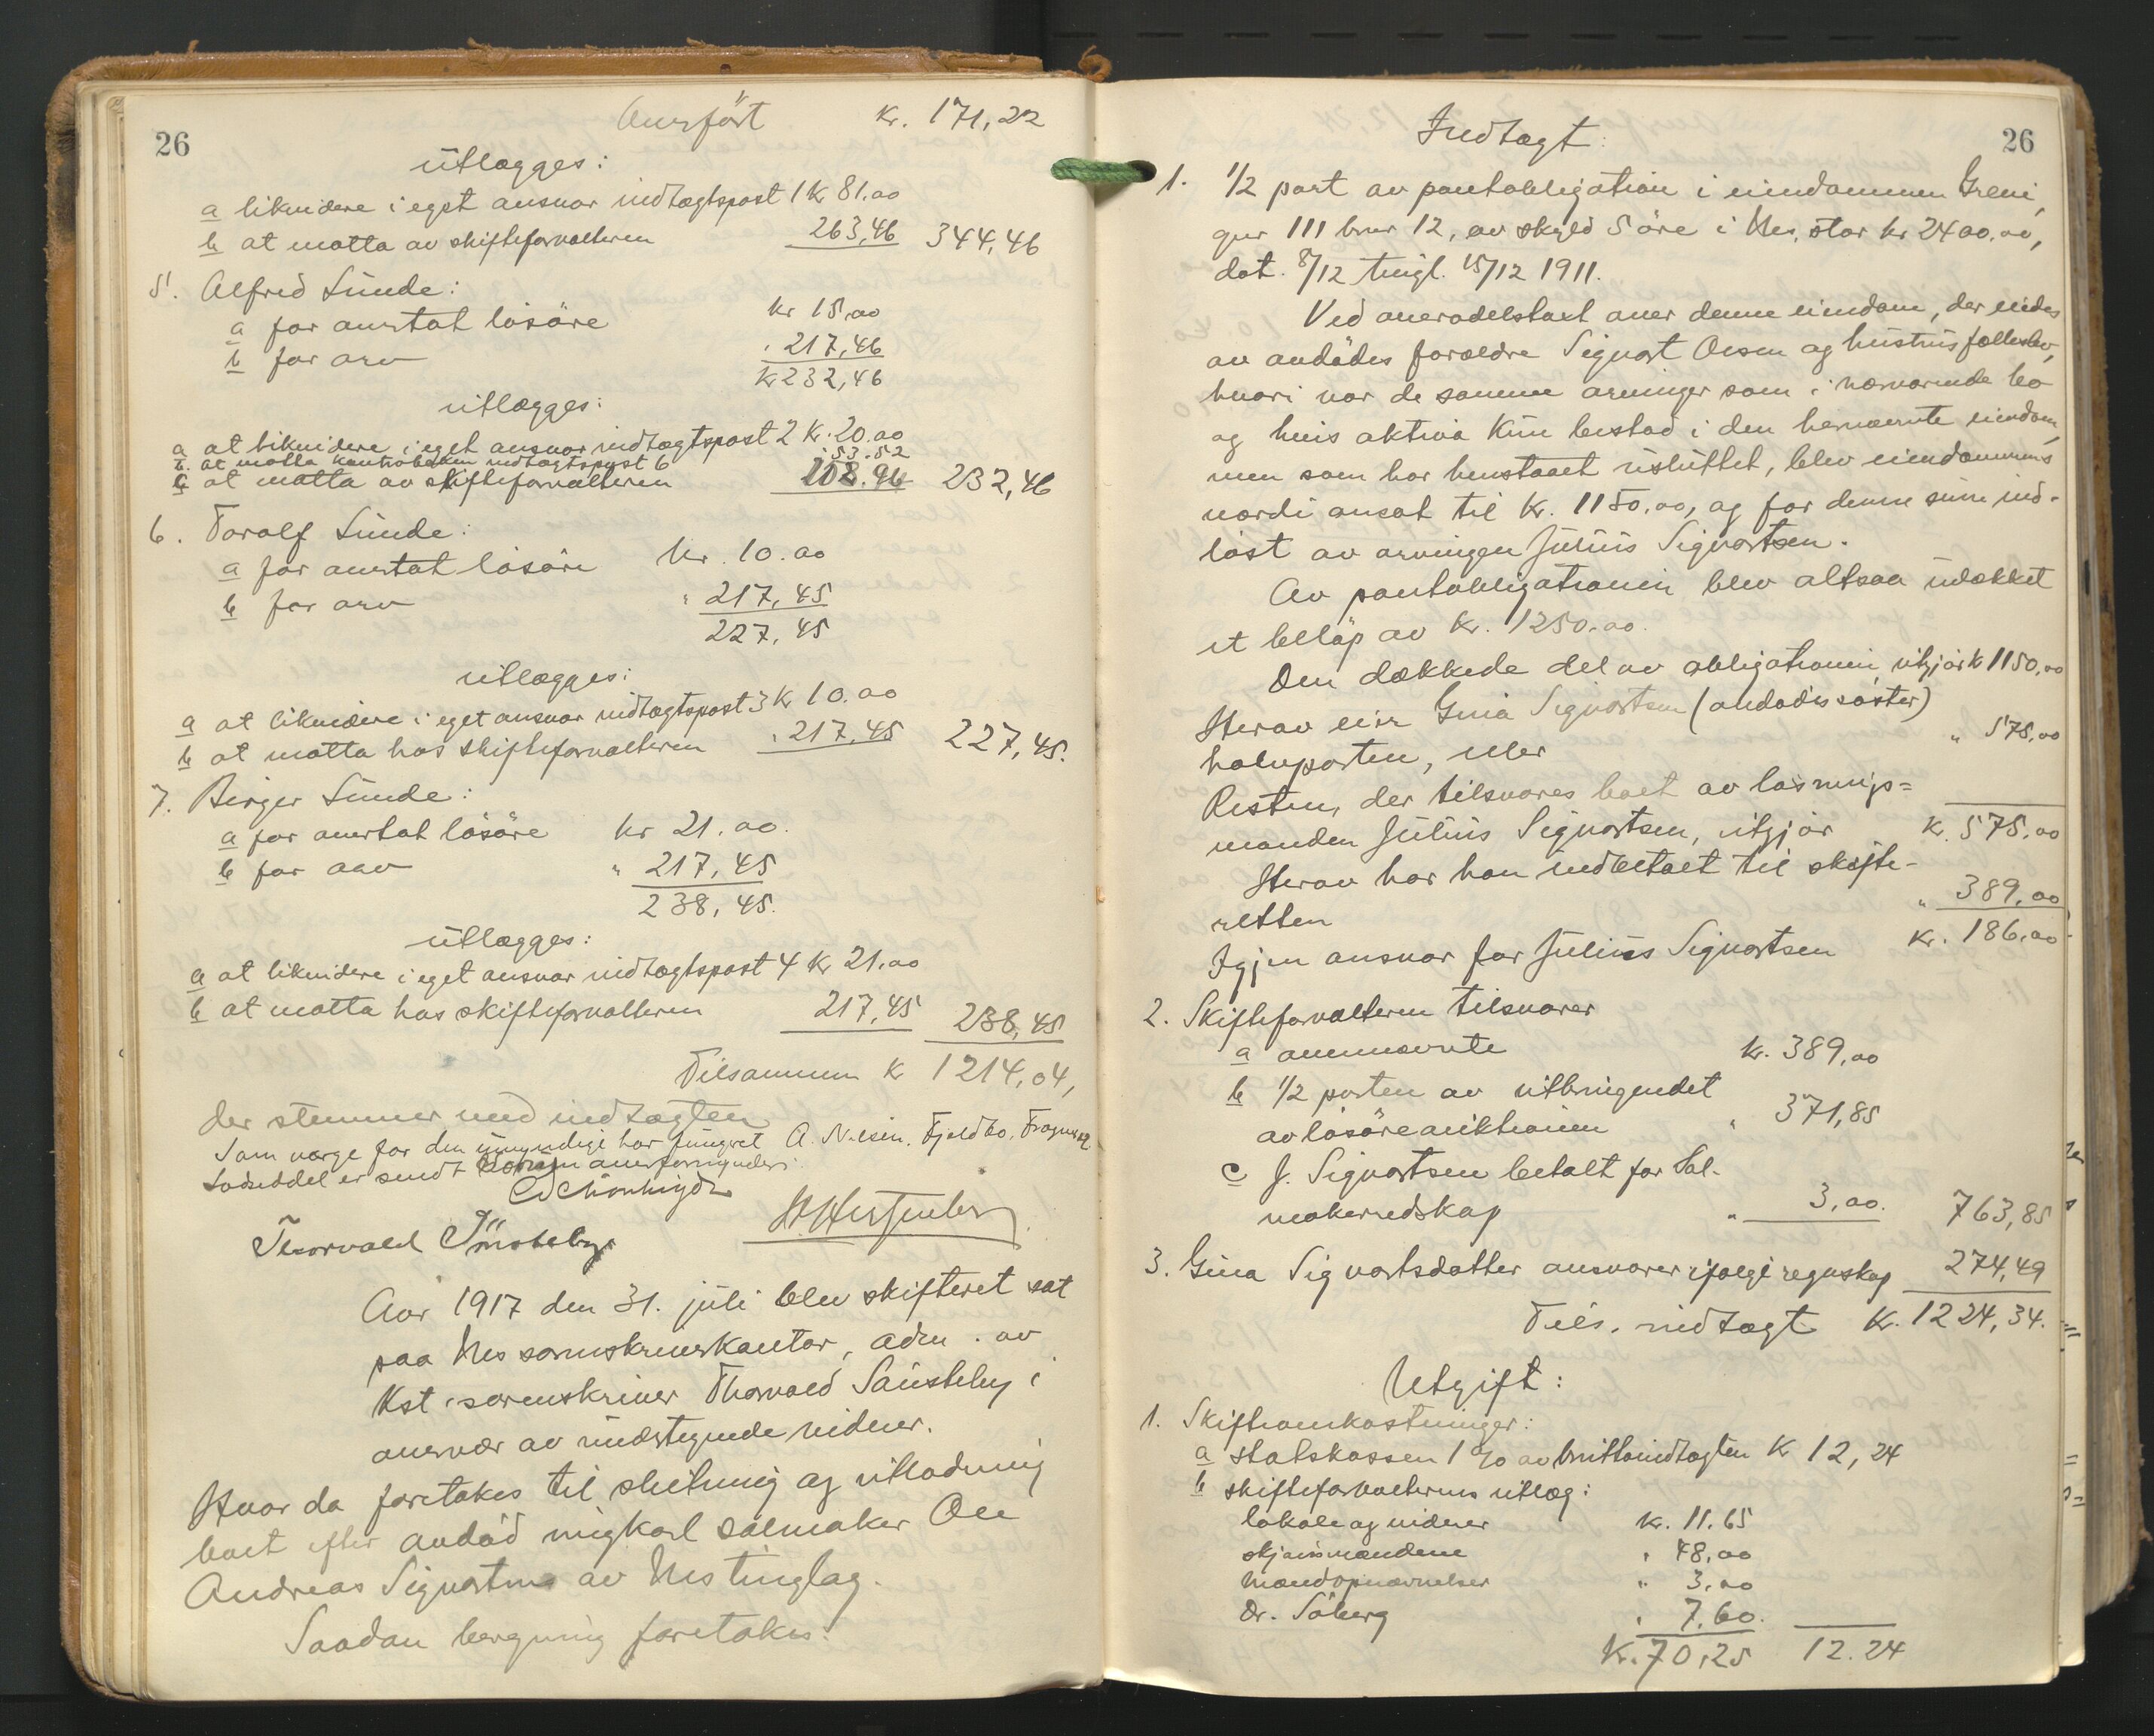 26
Overført kr. 171,22
utlægges:
a likvidere i eget ansvar indtægtspost 1 kr 81.00
b at motta av skifteforvalteren 263,46 344,46
5. Alfred Sunde:
a for overtat løsøre kr 15,00
b for arv " 217,46
kr 232,46
utlægges:
a at likvidere i eget ansvar indtægtspost 2 kr. 20.00
b. at motta kontrabøken indtægtspost 6 " 53.52
c at motta av skifteforvalteren 158.94 232,46
6. Toralf Sunde:
a for overtat løsøre kr. 10.00
b for arv " 217,45
227,45
utlægges:
a at likvidere i eget ansvar indtægtspost 3 kr 10.00
b at motta hos skifteforvalteren " 217,45 227,45.
7. Birger Sunde:
a for overtat løsøre kr 21.00.
b for arv " 217,45
238,45.
utlægges:
a at likvidere i eget ansvar indtægtspost 4 kr 21.00
b at motta hos skifteforvalteren 217,45 238,45
Tilsammen kr 1214,04,
der stemmer med indtægten
Som værge for den umyndige har fungeret A. Nilsen. Fjeldbo, Fragnes
Lodseddel er sendt overformynderi
Thorvald
Aar 1917 den 31. juli blev skifteret sat
paa Nes sorenskriverkontor, adm. av
Kst. sorenskriver Thorvald i
overvær av undertegnede vidner.
Hvor da foretokes til slutning og utlodning
boet efter avdød ungkarl salmaker Ole
Andreas Sigvartsen av Nes tinglag.
Saadan beregning foretokes:
Indtægt: 26
1. 1/2 part av pantobligation i eiendommen Greni,
gnr 111 bnr 12, av skyld 5 øre i Nes, stor kr 2400.00,
dat. 8/12 tingl. 15/12 1911.
Ved overodelstaxt over denne eiendom, der eiedes
av avdødes forældre Sigvart Olsen og hustrus fællesbo,
hvori var de samme arvinger som i nærværende bo
og hvis aktiva kun bestod i den hernævnte eiendom,
men som har henstaaet usluttet, blev eiendommens
værdi ansat til kr. 1150.00, og for denne sum ind-
løst av arvingen Julius Sigvartsen.
Av pantobligationen blev altsaa udækket
et beløp av kr. 1250.00.
Den dækkede del av obligationen utgjør kr 1150,00
Herav eier Gina Sigvartsen (avdødes søster)
halvparten, eller " 575,00
Resten, der tilsvares boet av løsnings=
manden Julius Sigvartsen, utgjør kr. 575,00
Herav har han indbetalt til skifte-
retten " 389,00
Igjen ansvar for Julius Sigvartsen kr. 186,00
2. Skifteforvalteren tilsvarer
a ovennævnte kr. 389,00
b 1/2 parten av utbringendet
av løsøreauktionen " 371,85
c J. Sigvartsen betalt for Sal-
makerredskap " 3,00. 763,85
3. Gina Sigvartsdatter ansvarer ifølge regnskap 274,49
Tils. indtægt kr. 1224,34.
Utgift:
1. Skifteomkostninger:
a statskassen 1 % av bruttoindtægten kr 12,24
b skifteforvalterens utlæg:
lokale og vidner kr. 11.65
skjønsmændene " 48,00
mandsopnævnelser " 3,00
Dr. Søberg " 7,60.
kr. 70,25 12.24